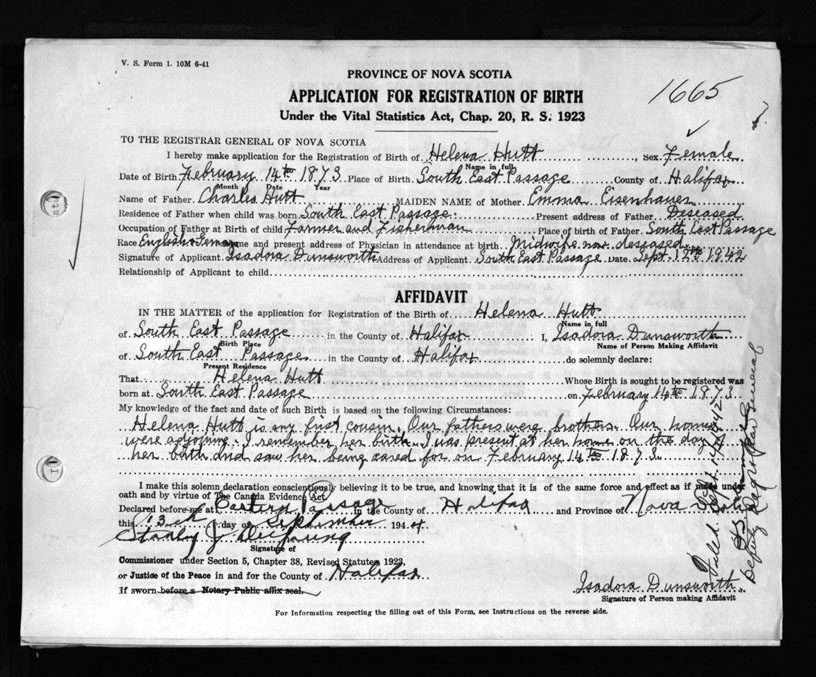 V. S. Form 1. 10M 6-41
PROVINCE OF NOVA SCOTIA
1665
APPLICATION FOR REGISTRATION OF BIRTH
Under the Vital Statistics Act, Chap. 20, R. S. 1923
TO THE REGISTRAR GENERAL OF NOVA SCOTIA
I hereby make application for the Registration of Birth of Helena Hutt, Sex Female
Name in full
Date of Birth February 14th 1873 Place of Birth South East Passage County of Halifax
Month Date Year
Name of Father Charles Hutt MAIDEN NAME of Mother Emma Eisenhauer
Residence of Father when child was born South East Passage Present address of Father Deseased
Occupation of Father at Birth of child Farmer and Fisherman Place of birth of Father South East Passage
Race English & German Name and present address of Physician in attendance at birth Midwife now deseased
Signature of Applicant Isadora Dunsworth Address of Applicant South East Passage Date Sept. 12th 1942
Relationship of Applicant to child
AFFIDAVIT
IN THE MATTER of the application for Registration of the Birth of Helena Hutt
Name in full
of South East Passage in the County of Halifax I, Isadora Dunsworth
Birth Place Name of Person Making Affidavit
of South East Passage in the County of Halifax do solemnly declare:
Present Residence
That Helena Hutt Whose Birth is sought to be registered was
born at South East Passage on February 14th 1873
My knowledge of the fact and date of such Birth is based on the following Circumstances:
Helena Hutt is my first cousin. Our fathers were brothers. Our homes
were adjoining. I remember her birth. I was present at her home on the day
her bith and saw her being cared for on February 14th 1873
I make this solemn declaration conscientiously believing it to be true, and knowing that it is of the same force and effect as if made under
oath and by virtue of The Canada Evidence Act.
Declared before me at Eastern Passage in the County of Halifax and Province of Nova Scotia
this 13th day of September 194
Stanley J.
Signature of
Commissioner under Section 5, Chapter 38, Revised Statutes 1923,
or Justice of the Peace in and for the County of Halifax
If sworn before a Notary Public affix seal.
Isadora Dunsworth
Signature of Person making Affidavit
For Information respecting the filling out of this Form, see Instructions on the reverse side.
Filed Sept. 1942
Deputy Registrar General